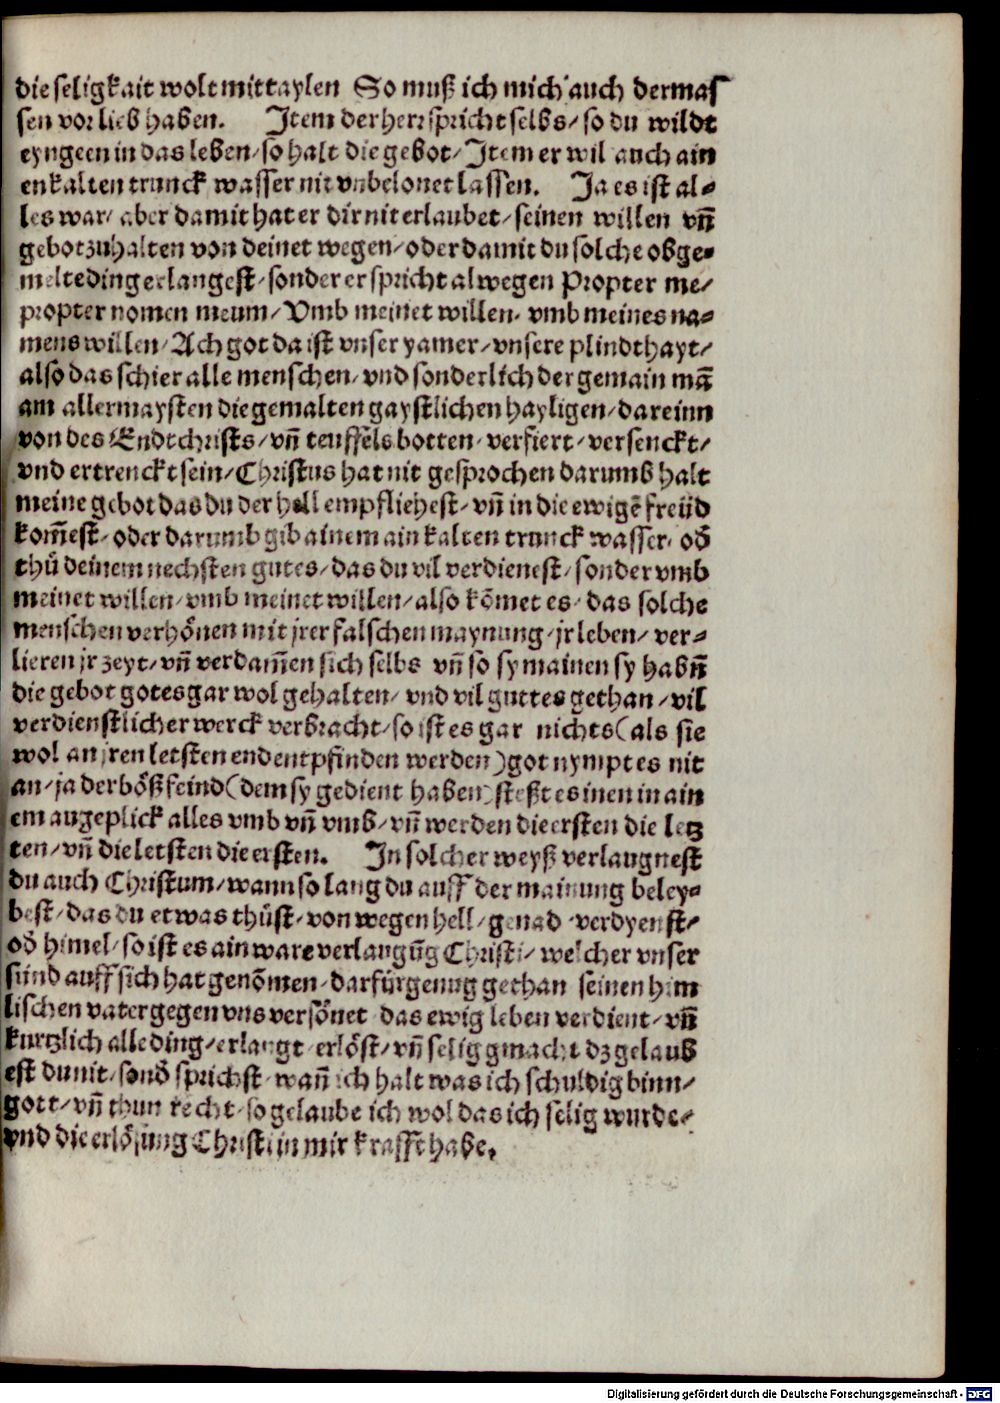 die seligkait wolt mittaylen So muß ich mich auch dermas
sen vor lieb haben. Item der herr spricht selbs/ so du wildt
eyngeen in das leben/ so halt die gebot/ Item er wil auch ain
en kalten trunck wasser nit vnbelonet lassen. Ja es ist al⸗
les war/ aber damit hat er dir nit erlaubet/ seinen willen vn̄
gebot zuhalten von deinet wegen/ oder damit du solche obge⸗
melte ding erlangest/ sonder er spricht alwegen Propter me/
propter nomen meum/ Vmb meinet willen. vmb meines na⸗
mens willen/ Ach got da ist vnser yamer/ vnsere plindthayt/
also das schier alle menschen/ vnd sonderlich der gemain mā
am allermaysten die gemalten gaystlichen hayligen/ dareinn
von des Endtchrists/ vn̄ teuffels botten/ verfiert/ versenckt/
vnd ertrenckt sein/ Christus hat nit gesprochen darumb halt
meine gebot das du der hell empfliehest/ vn̄ in die ewigē freüd
kom̄est/ oder darumb gib ainem ain kalten trunck wasser/ od̄
thů deinem nechsten gutes/ das du vil verdienest/ sonder vmb
meinet willen/ vmb meinet willen/ also kōmet es/ das solche
menschen verhönen mit jrer falschen maynung/ jr leben/ ver⸗
lieren jr zeyt/ vn̄ verdam̄en sich selbs vn̄ so sy mainen sy habn̄
die gebot gotes gar wol gehalten/ vnd vil guttes gethan/ vil
verdienstlicher werck verbracht/ so ist es gar nichts (als sie
wol an jren letsten end entpfinden werden) got nympt es nit
an/ ja der böß feind (dem sy gedient haben) steßt es inen in ain
em augeplick alles vmb vn̄ vmb/ vn̄ werden die ersten die letz
ten/ vn̄ die letsten die ersten. In solcher weyß verlaugnest
du auch Christum/ wann so lang du auff der mainung beley⸗
best/ das du etwas thůst/ von wegen hell/ genad verdyenst/
od̄ himel/ so ist es ain ware verlaugūg Christi/ welcher vnser
sünd auff sich hat genōmen/ darfür genug gethan seinen him
lischen vater gegen vns versönet das ewig leben verdient/ vn̄
kurtzlich alle ding/ erlangt erlöst/ vn̄ selig gmacht dz gelaub
est du nit/ sond̄ sprichst/ wan̄ ich halt was ich schuldig binn/
gott/ vn̄ thun recht/ so gelaube ich wol das ich selig wurde/
vnd die erlösung Christi in mir krafft habe.
Digitalisierung gefördert durch die Deutsche Forschungsgemeinschaft - DFG